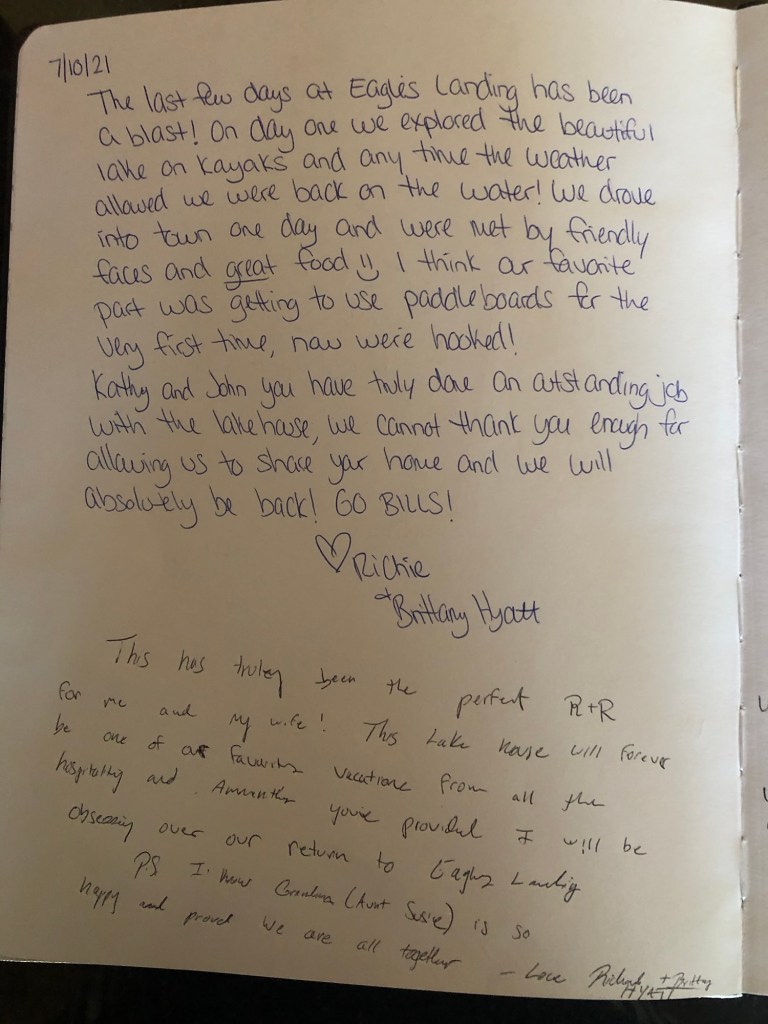 7/10/21
The last few days at Eagles Landing has been
a blast! On day one we explored the beautiful
lake on kayaks and any time the weather
allowed we were back on the water! We drove
into town one day and were met by friendly
faces and great food I think our favorite
part was getting to use paddleboards for the
very first time, now we're hooked!
Kathy and John you have truly done an outstanding job
with the lakehouse, we cannot thank you enough for
allowing us to share your home and we will
absolutely be back! GO BILLS!
♡ Richie
+ Brittany Hyatt
This has truley been the perfect R+R
for me and my wife! This Lake house will forever
be one of our favourite vacations from all the
hospitality and you've provided I will be
obsessing over our return to Eagles Landing
PS I know Grandma (Aunt Susie) is so
happy and proud we are all together
- Love Richard + Brittany
HYATT